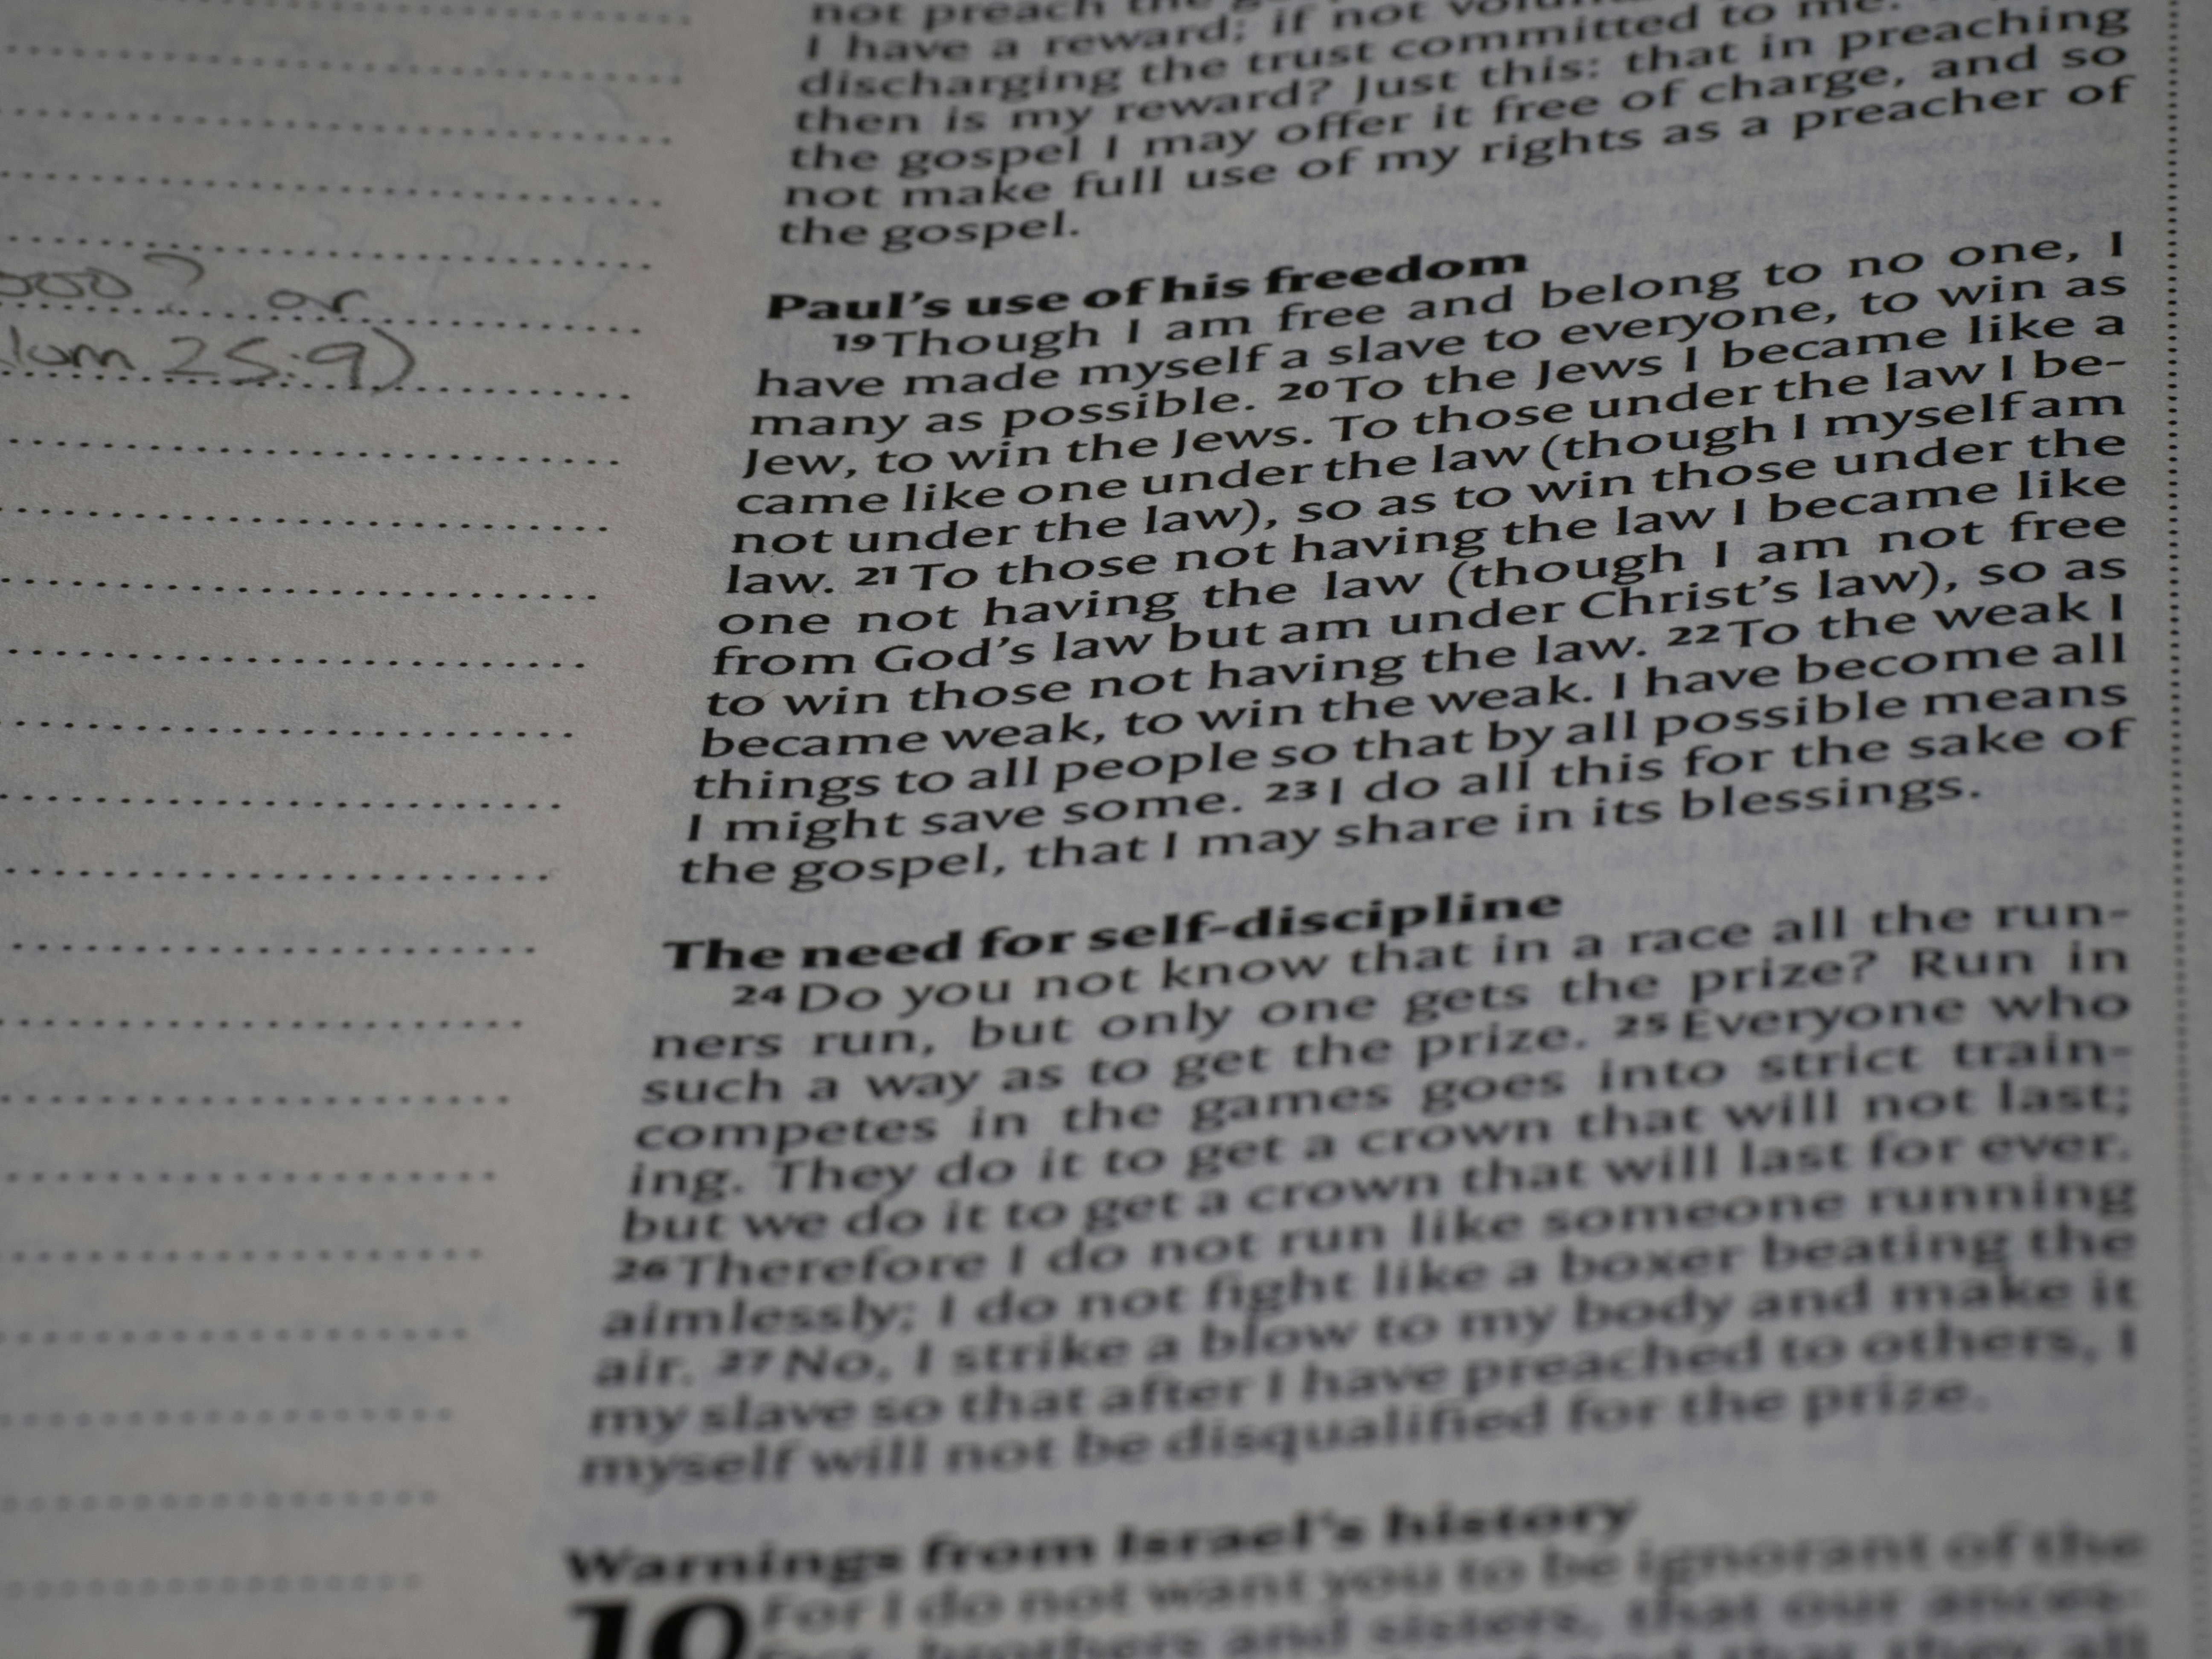 000? or
Num 25:9)
not preach the
I have a reward; if not
discharging the trust committed to me.
then is my reward? Just this: that in preaching
the gospel I may offer it free of charge, and so
not make full use of my rights as a preacher of
the gospel.
Paul's use of his freedom
19 Though I am free and belong to no one, I
have made myself a slave to everyone, to win as
many as possible. 20 To the Jews I became like a
Jew, to win the Jews. To those under the law I be-
came like one under the law (though I myself am
not under the law), so as to win those under the
law. 21 To those not having the law I became like
one not having the law (though I am not free
from God's law but am under Christ's law), so as
to win those not having the law. 22 To the weak I
became weak, to win the weak. I have become all
things to all people so that by all possible means
I might save some. 23 I do all this for the sake of
the gospel, that I may share in its blessings.
The need for self-discipline
24 Do you not know that in a race all the run-
ners run, but only one gets the prize? Run in
such a way as to get the prize. 25 Everyone who
competes in the games goes into strict train-
ing. They do it to get a crown that will not last;
but we do it to get a crown that will last for ever.
26 Therefore I do not run like someone running
aimlessly; I do not fight like a boxer beating the
air. 27 No, I strike a blow to my body and make it
my slave so that after I have preached to others, I
myself will not be disqualified for the prize.
Warnings from Israel's history
10 For I do not want you to be ignorant of the
brothers and sisters, that our ances-
that they all